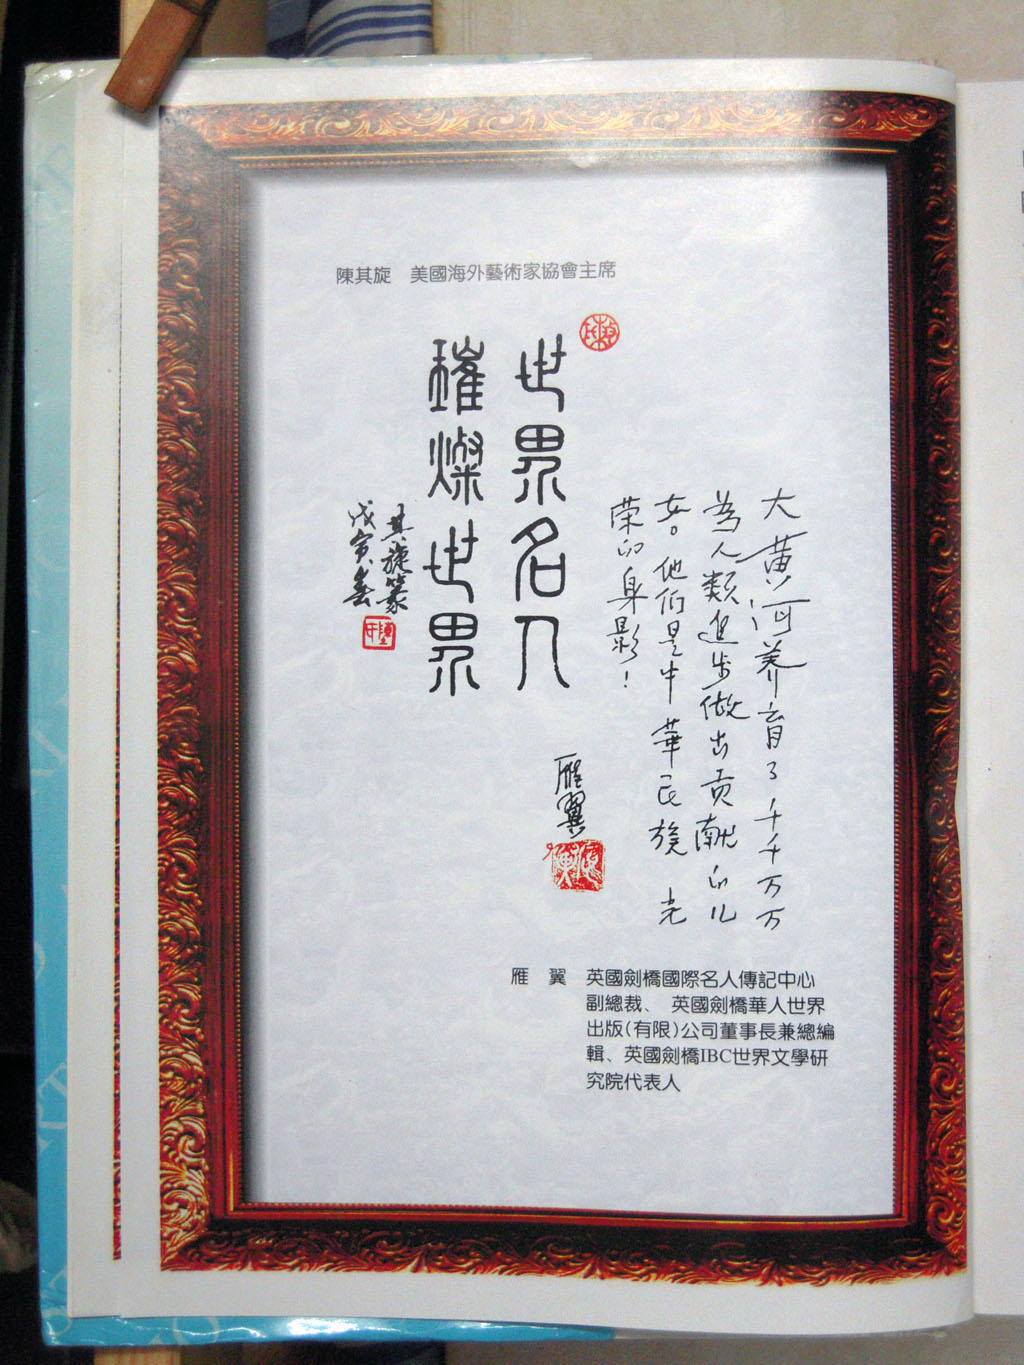 陳其旋　美國海外藝術家協會主席
世界名人
璀燦世界
其旋篆
戊寅春
大黄河养育了千千万万
為人類進步做出贡献的儿
女。他们是中華民族 光
荣的身影！
雁翼
雁　翼　英國劍橋國際名人傳記中心
副總裁、 英國劍橋華人世界
出版(有限)公司董事長兼總編
輯、英國劍橋IBC世界文學研
究院代表人